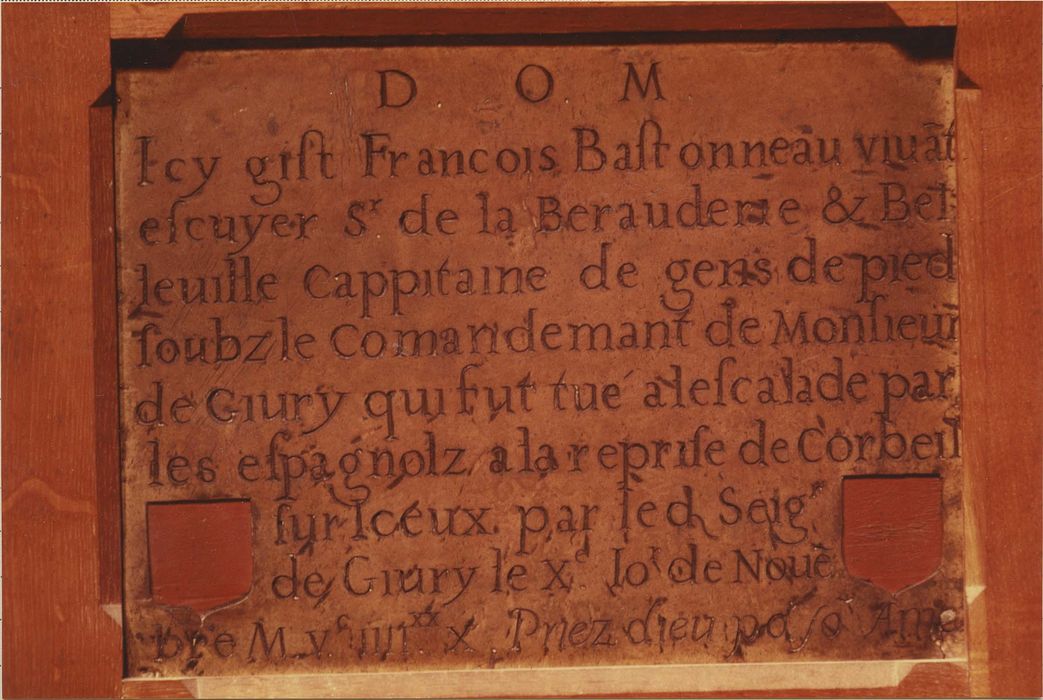 D. O. M
Icy gist Francois Bastonneau viuāt
escuyer Sʳ de la Berauderie & Bel
leuille Cappitaine de gens de pied
soubz le Comandemant de Monsieur
de Giury qui fut tué a lescalade par
les espagnolz a la reprise de Corbeil
sur Iceux par led Seigʳ
de Giury le Xᵉ Ioʳ de Nouē
bre M vᶜ IIIIˣˣ X Priez dieu poʳ sō Ame